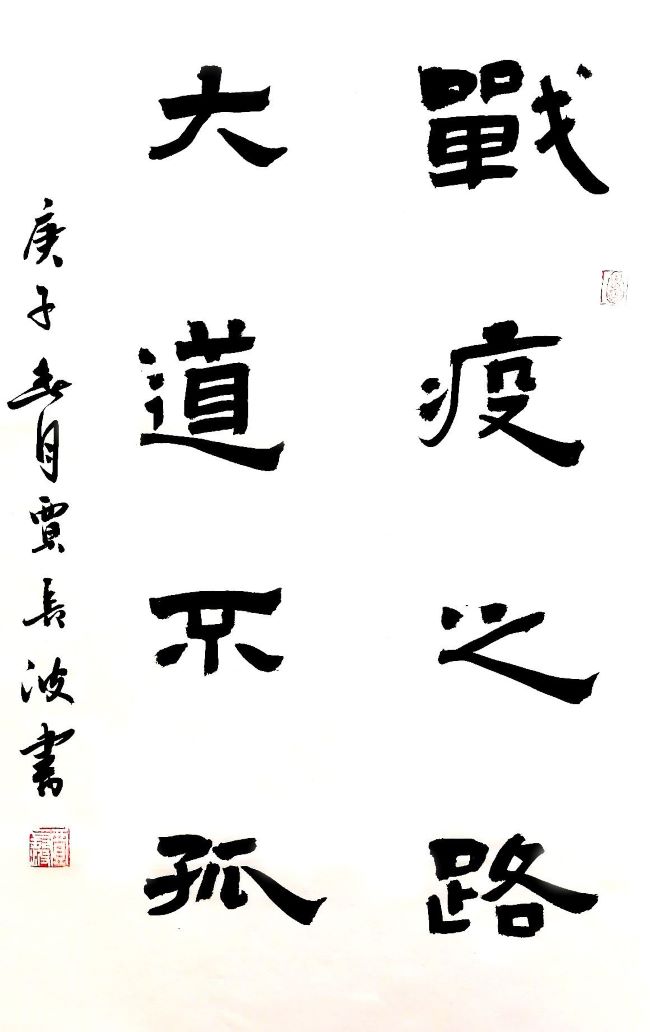 戰疫之路
大道不孤
庚子春月賈長波書